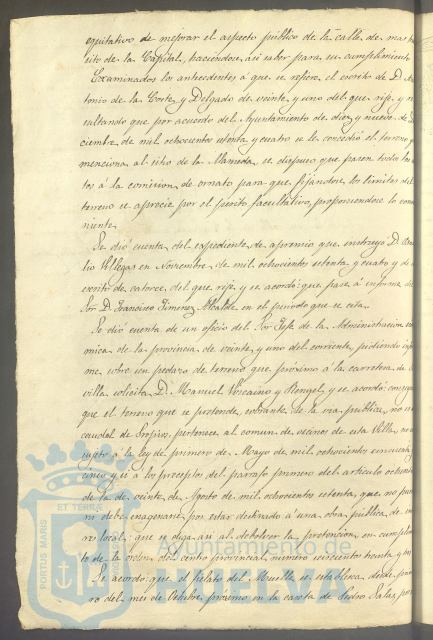 equitativo de mejorar el aspecto público de la calle de mas
cito de la Capital, haciendose asi saber para su cumplimiento
Examinados los antecedentes á que se refiere el escrito de D.
tonio de la Corte y Delgado de veinte y uno del que rije, y
sultando que por acuerdo del Ayuntamiento de diez y nueve de
ciembre de mil ochocientos setenta y cuatro se le concedió el terreno
menciona al sitio de la Alameda, se dispuso que pasen todos
tos á la comision de ornato para que fijandose los limites del
terreno se aprecie por el perito facultativo, proponiendose lo
niente.
Se dió cuenta del expediente de apremio que instruyó D.
lio Villegas en Noviembre de mil ochocientos setenta y cuatro y
escrito de catorce del que rije, y se acordó: que pase á informe
Sor D. Francisco Gimenez Alcalde en el periodo que se cita.
Se dió cuenta de un oficio del Sor Gefe de la Administracion
omica de la provincia de veinte y uno del corriente, pidiendo
me sobre un pedazo de terreno que próximo á la carretera de
villa solicita D. Manuel Vizcaino y Rengel, y se acordó:
que el terreno que se pretende, sobrante de la via pública, no
caudal de Propios, pertenece al comun de vecinos de esta Villa,
sujeto á la ley de primero de Mayo de mil ochocientos cincuenta
cinco y si á los preceptos del parrafo primero del articulo
de la de veinte de Agosto de mil ochocientos setenta, que no
ni debe enagenarse por estar destinado á una obra pública de
res local: que se diga asi al debolver la pretencion en
to de la orden del centro provincial número seiscientos treinta y
Se acordó: que el fielato del Muelle se establezca desde
ro del mes de Octubre próximo en la casita de Pedro Salas,
PORTUS MARIS
ET TERRÆ
Ayuntamiento de